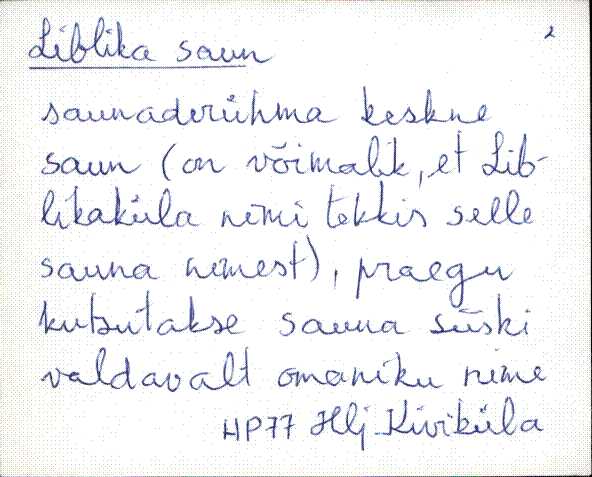 2
Liblika saun
saunaderühma keskne
saun (on võimalik, et Lib-
likaküla nimi tekkis selle
sauna nimest), praegu
kutsutakse sauna siiski
valdavalt omaniku nime
HP77 Hlj. Kiviküla